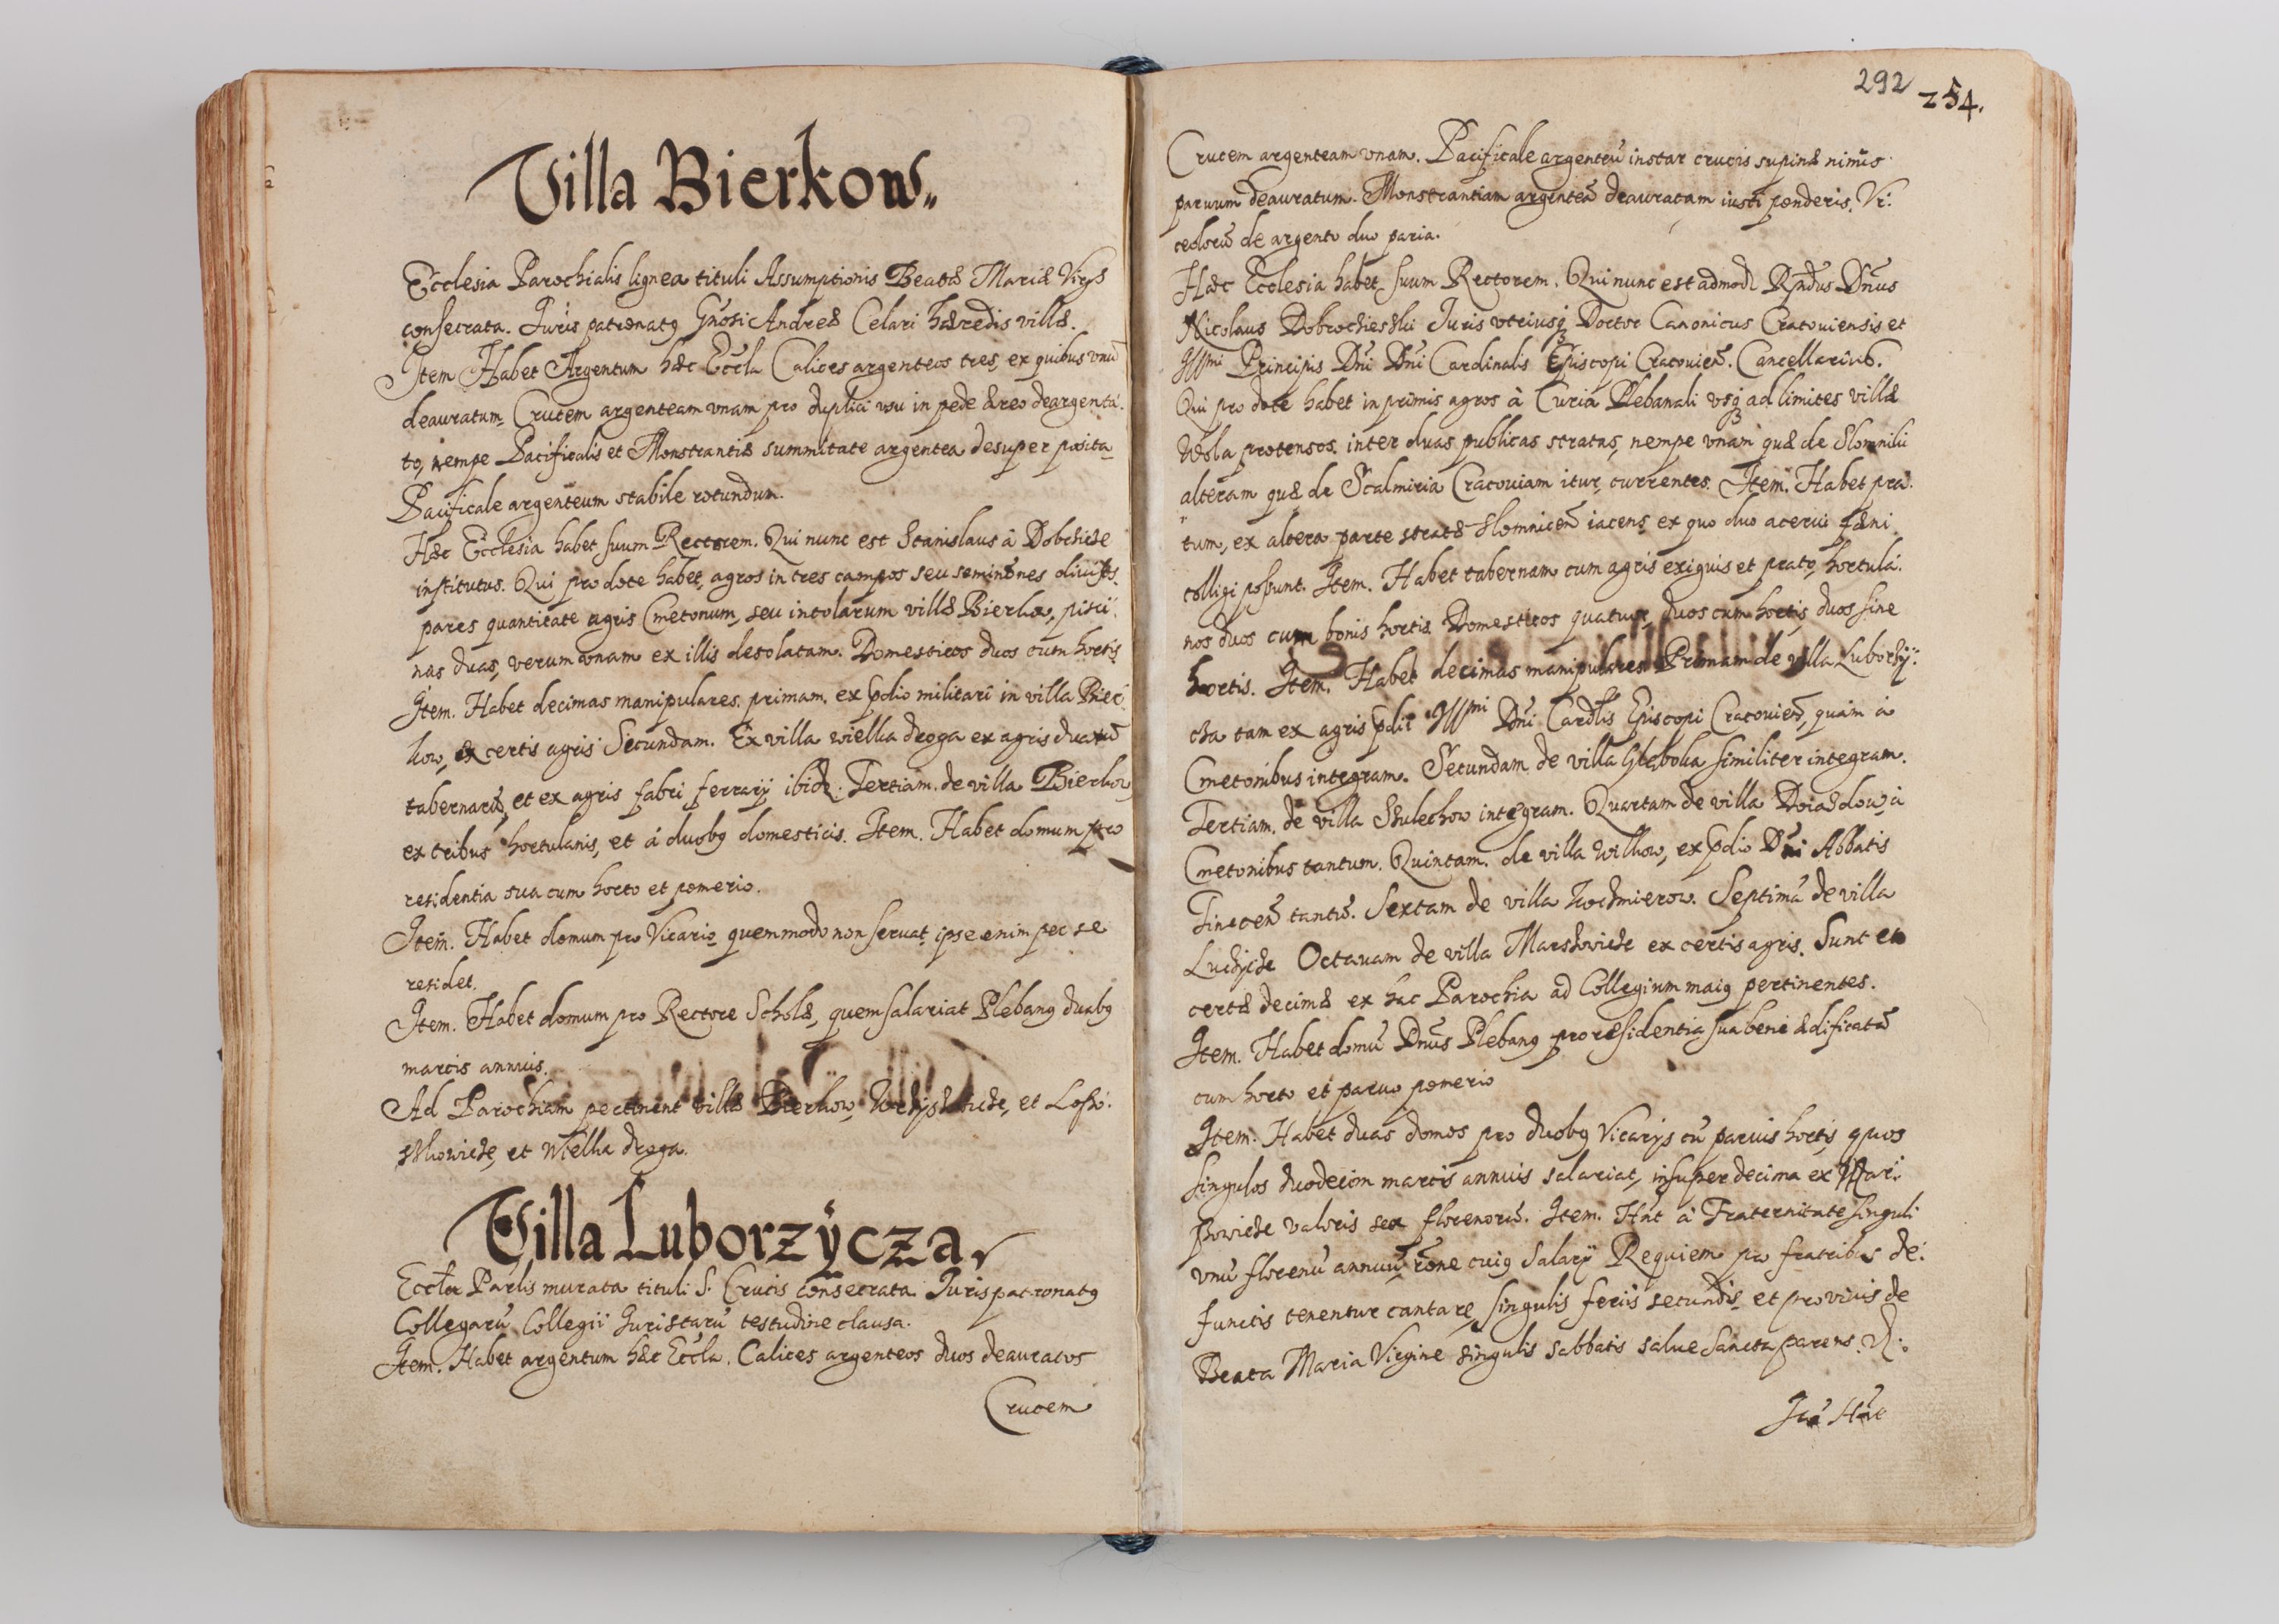 Villa Bierkow„
Ecclesia Parochialis lignea tituli Assumptionis Beatæ Mariæ Virgs
consecrata. Juris patronatꝯ Gnosi Andreæ Celari hæredis villæ.
Item Habet Argentum hæc Eccla Calices argenteos tres, ex quibus vnũ
deauratum Crucem argenteam vnam pro duplici vsu in pede æreo deargenta:
to, nempe Pacificalis et Monstrantiæ summitate argentea desuper posita
Pacificale argenteum stabile rotundum.
Hæc Ecclesia habet suum Rectorem. Qui nunc est Stanislaus à Dobchicze
institutus. Qui pro dote habet, agros in tres campos seu seminõnes divisos
pares quantitate agris Cmetonum, seu incolarum villæ Bierkow, pisci:
nas duas, verum vnam ex illis desolatam. Domesticos duos cum hortis
Item. Habet decimas manipulares. primam. ex pdio militari in villa Bier:
kow, ex certis agris Secundam. Ex villa wielka droga ex agris duarũ
tabernarũ, et ex agris fabri ferrarij ibid. Tertiam. de villa Bierkow
ex tribus hortulanis, et á duobꝯ domesticis. Item. Habet domum pro
residentia sua cum horto et pomerio.
Item. Habet domum pro Vicario quem modo non seruat, ipse enim per se
residet.
Item. Habet domum pro Rectore Scholæ, quem salariat Plebanꝯ duabꝯ
marcis annuis.
Ad Parochiam pertinent villæ Bierkow, et
et Wielka droga.
Villa Luborzÿcza,
Eccla Parlis murata tituli S. Crucis consecrata Juris patronatꝯ
Collegarũ Collegii Juristarũ testudine clausa.
Item. Habet argentum hæc Eccla. Calices argenteos duos deauratos
Crucem
292 254.
Crucem argenteam vnam. Pacificale argenteũ instar crucis supinæ nimis
paruum deauratum. Monstrantiam argenteã deauratam iusti ponderis. Vr:
ceolorũ de argento duo paria.
Hæc Ecclesia habet suum Rectorem. Qui nunc est admod Rndus Dnus
Nicolaus Dobrocieski Juris vtriusqꝫ Doctor Canonicus Cracouiensis et
Illmi Principis Dni Dni Cardinalis Episcopi Cracouien. Cancellarius.
Qui pro dote habet in primis agros à Curia Plebanali vsqꝫ ad limites villæ
Wola protensos. inter duas publicas stratas, nempe vnam quæ de Slomniki
alteram quæ de Scalmiria Cracouiam itur, currentes. Item. Habet pra:
tum, ex altera parte stratæ Slomnicen iacens, ex quo duo acerui fæni
colligi possunt. Item. Habet tabernam cum agris exiguis et prato, hortula:
nos duos cum bonis hortis. Domesticos quatuor, duos cum hortis, duos sine
hortis. Item. Habet decimas manipulares. Primam de villa Luborzy:
cza tam ex agris pdii Illmi Dni Cardlis Episcopi Cracouien, quam à
Cmetonibus integram. Secundam de villa Gleboka similiter integram.
Tertiam. de villa Skulechow integram. Quartam de villa à
Cmetonibus tantum. Quintam. de villa Wilkow, ex pdio Dni Abbatis
Tinecen tantũ. Sextam de villa Kochmierow. Septimã de villa
Luchicze Octauam de villa Marszowicze ex certis agris. Sunt et
certæ decimæ ex hac Parochia ad Collegium maiꝯ pertinentes.
Item. Habet domũ Dnus Plebanꝯ pro residentia sua bene ædificatã
cum horto et paruo pomerio
Item. Habet duas domos pro duobꝯ Vicarijs cũ paruis hortis, quos
singulos duodecim marcis annuis salariat, insuper decima ex Mar:
szowicze valoris sex florenorũ. Item. Hnt à Fraternitate singuli
vnũ florenũ annuũ rõne cuiꝯ salarij Requiem pro fratribus de:
functis tenentur cantare, singulis feriis secundis, et pro viuis de
Beata Maria Virgine singulis sabbatis salue Sancta parens.
Itẽ Hnt